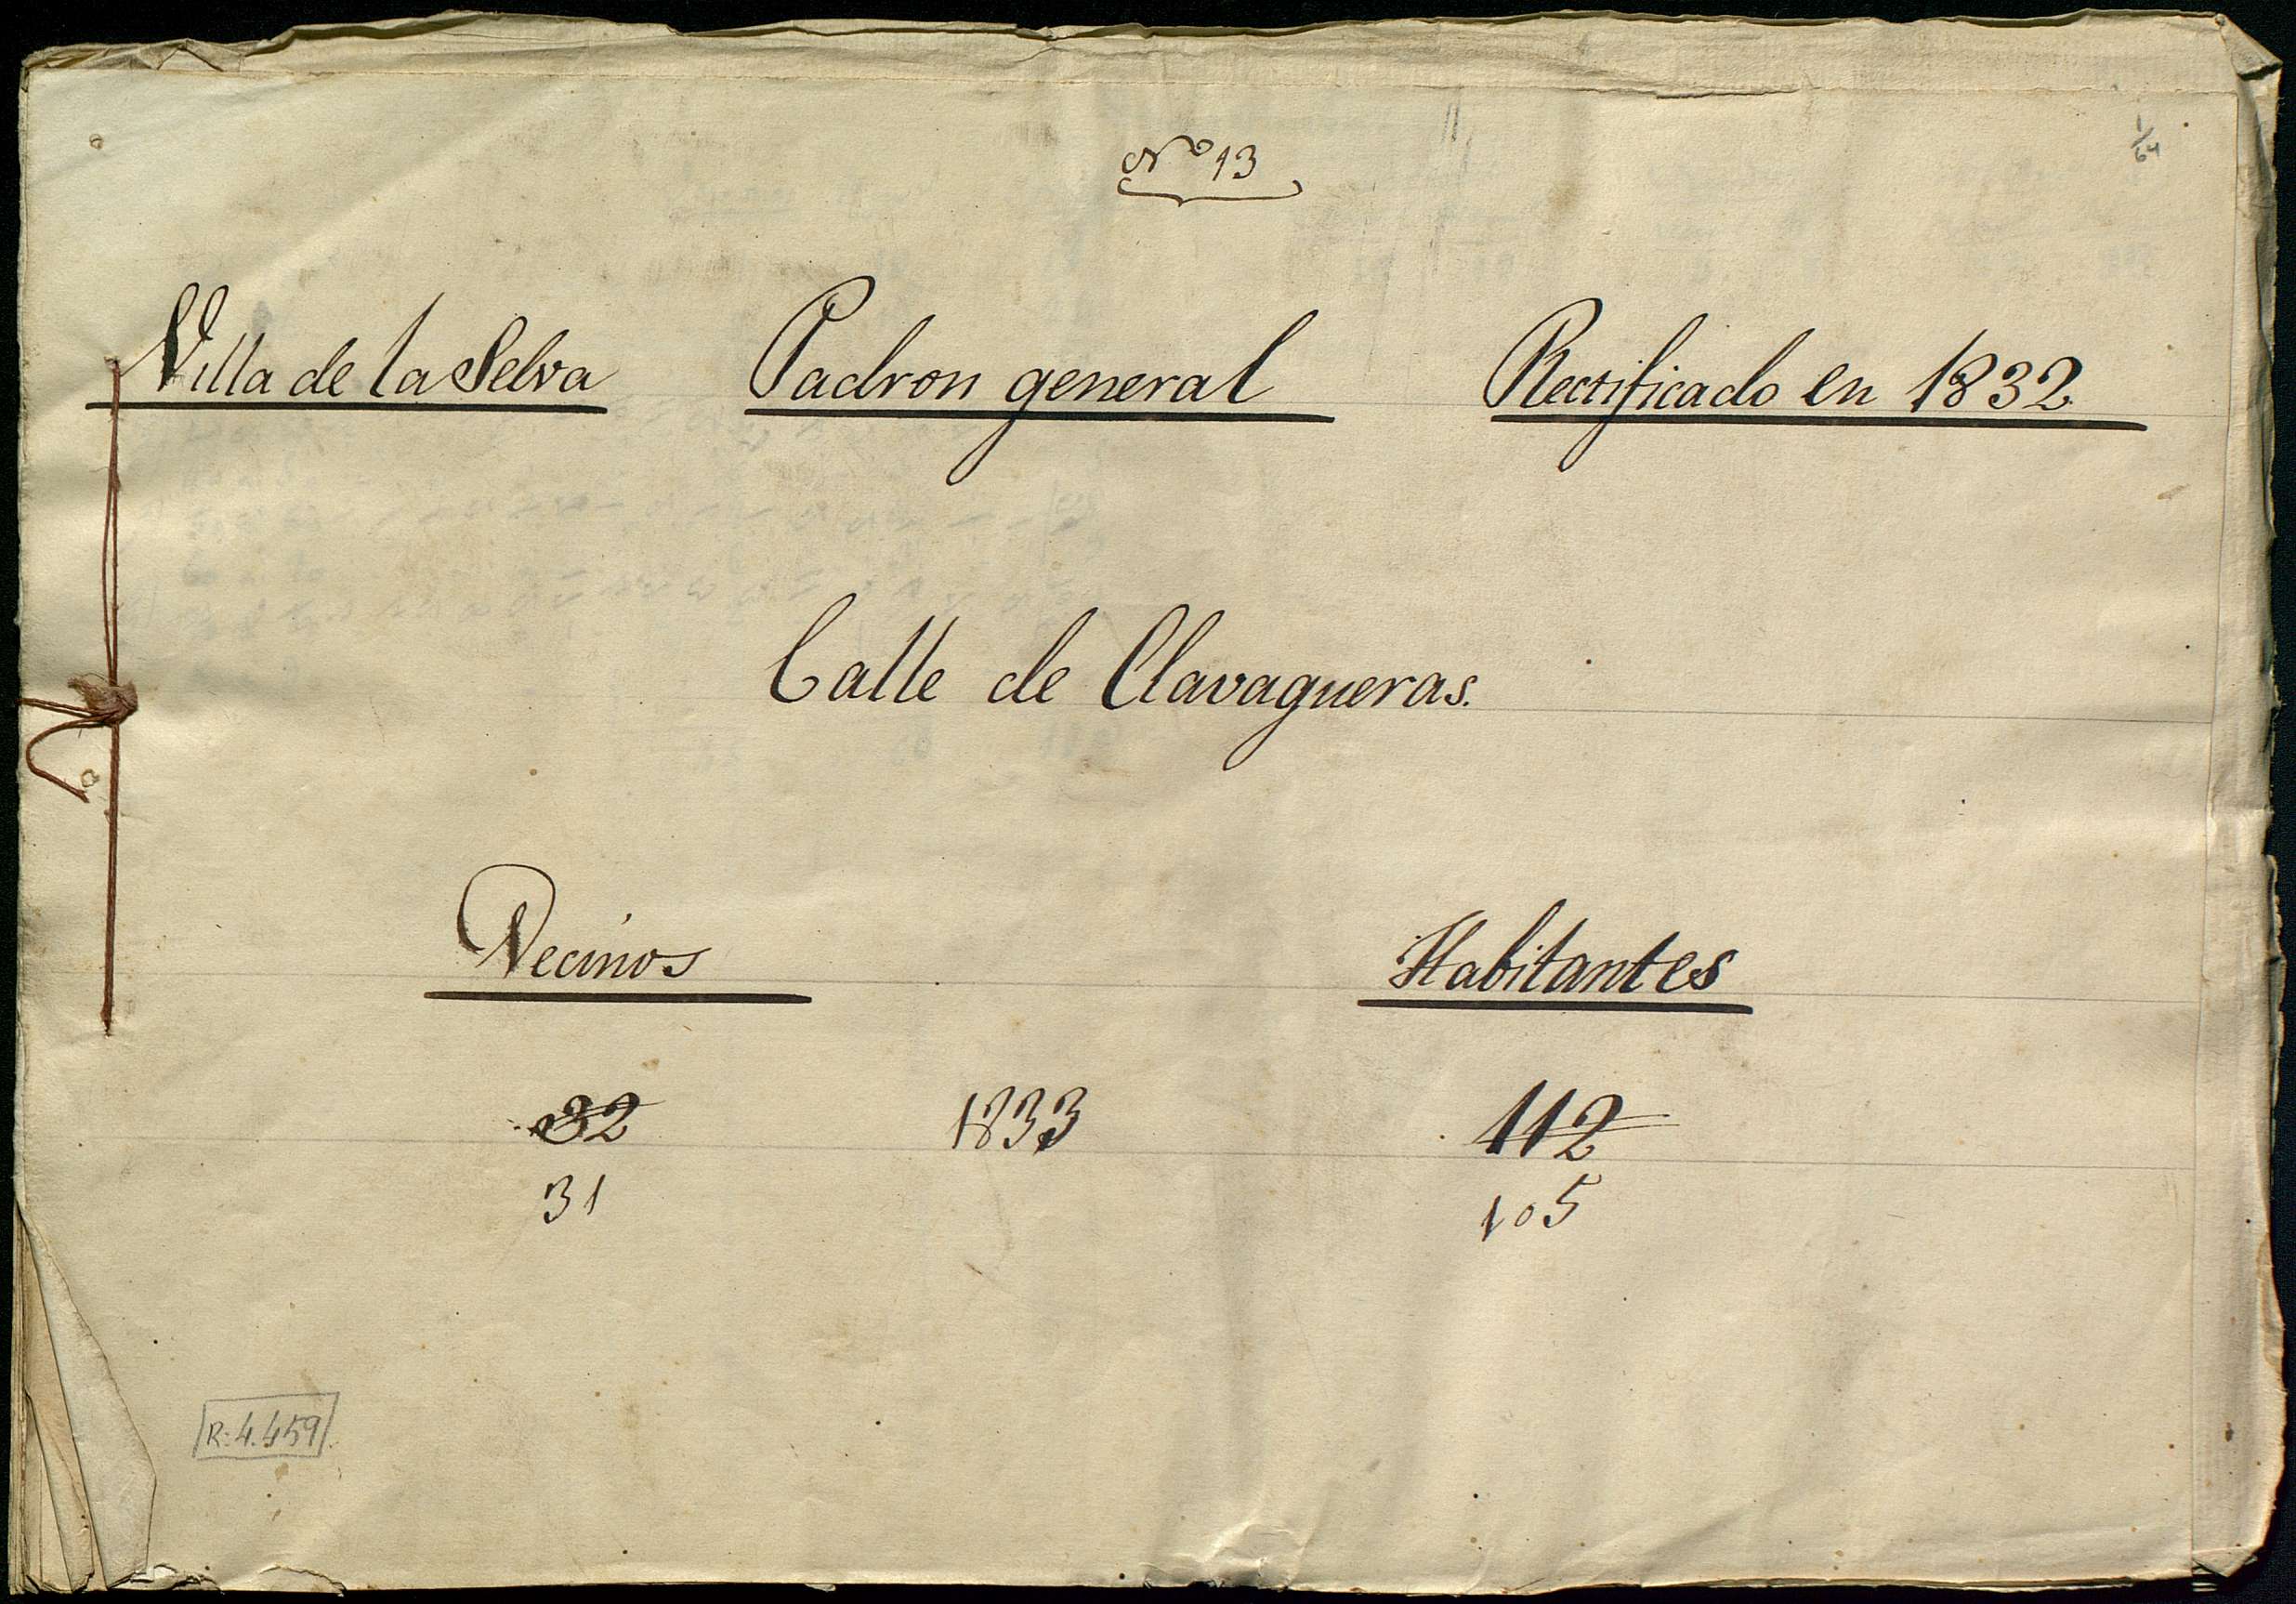 Nº 13
1/64
Villa de la Selva Padron general Rectificado en 1832
Calle de Clavagueras.
Vecinos Habitantes
32 1833 112
31 105
R: 4.459